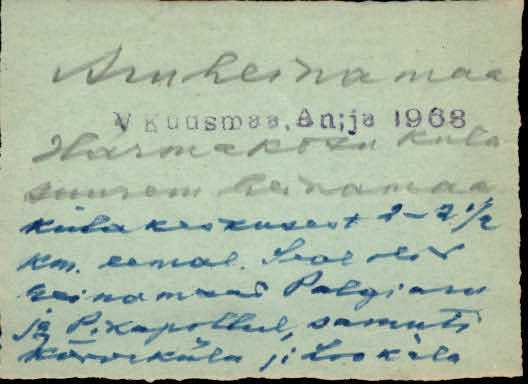 Aruheinamaa
V Kuusmaa, Anija 1968
Harmakosu küla
suurem heinamaa
külakeskusest 2-2 1/2
km. eemal. Seal olid
heinamaad Palgiaru
ja Pikapõllul, samuti
Kõrveküla ja Looküla